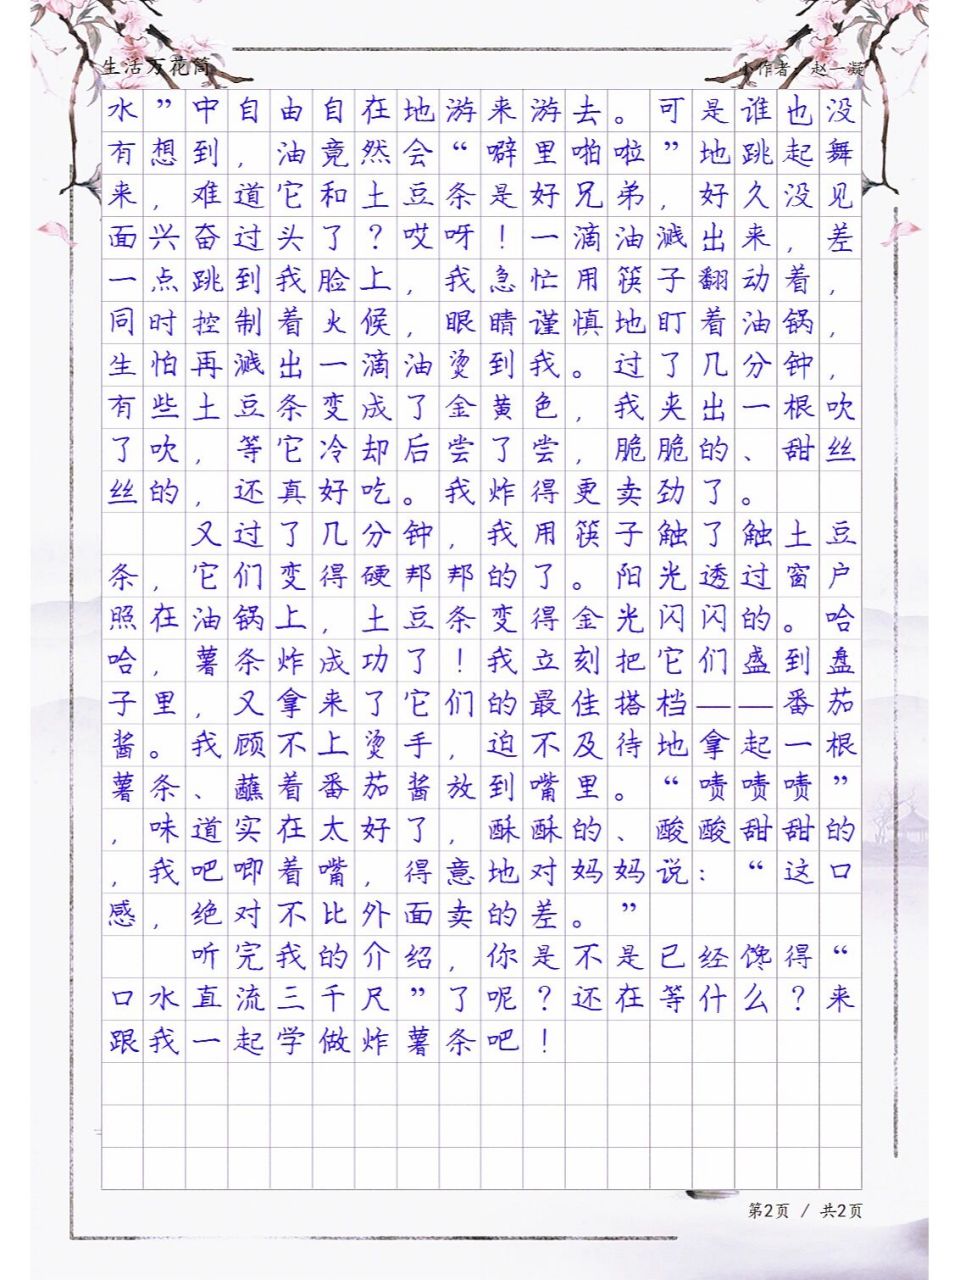 生活万花筒
小作者：赵一凝
水”中自由自在地游来游去。可是谁也没
有想到，油竟然会“噼里啪啦”地跳起舞
来，难道它和土豆条是好兄弟，好久没见
面兴奋过头了？哎呀！一滴油溅出来，差
一点跳到我脸上，我急忙用筷子翻动着，
同时控制着火候，眼睛谨慎地盯着油锅，
生怕再溅出一滴油烫到我。过了几分钟，
有些土豆条变成了金黄色，我夹出一根吹
了吹，等它冷却后尝了尝，脆脆的、甜丝
丝的，还真好吃。我炸得更卖劲了。
又过了几分钟，我用筷子触了触土豆
条，它们变得硬邦邦的了。阳光透过窗户
照在油锅上，土豆条变得金光闪闪的。哈
哈，薯条炸成功了！我立刻把它们盛到盘
子里，又拿来了它们的最佳搭档——番茄
酱。我顾不上烫手，迫不及待地拿起一根
薯条、蘸着番茄酱放到嘴里。“啧啧啧”
，味道实在太好了，酥酥的、酸酸甜甜的
，我吧唧着嘴，得意地对妈妈说：“这口
感，绝对不比外面卖的差。”
听完我的介绍，你是不是已经馋得“
口水直流三千尺”了呢？还在等什么？来
跟我一起学做炸薯条吧！
第2页 / 共2页